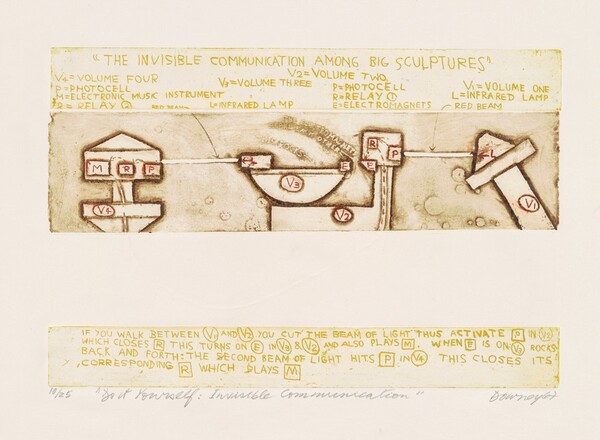 "THE INVISIBLE COMMUNICATION AMONG BIG SCULPTURES"
V4=VOLUME FOUR V3=VOLUME THREE V2=VOLUME TWO V1=VOLUME ONE
P=PHOTOCELL P=PHOTOCELL L=INFRARED LAMP
M=ELECTRONIC MUSIC INSTRUMENT R=RELAY
R=RELAY RED BEAM L=INFRARED LAMP E=ELECTROMAGNETS RED BEAM
M R P L E R P E L
V4 V3 V2 V1
IF YOU WALK BETWEEN V1 AND V2 YOU CUT THE BEAM OF LIGHT THUS ACTIVATE P IN V2
WHICH CLOSES R THIS TURNS ON E IN V3 & V2 AND ALSO PLAYS M. WHEN E IS ON V3 ROCKS
BACK AND FORTH: THE SECOND BEAM OF LIGHT HITS P IN V4 THIS CLOSES ITS
CORRESPONDING R WHICH PLAYS M
18/25 "Do it Yourself: Invisible Communication" Downey 67